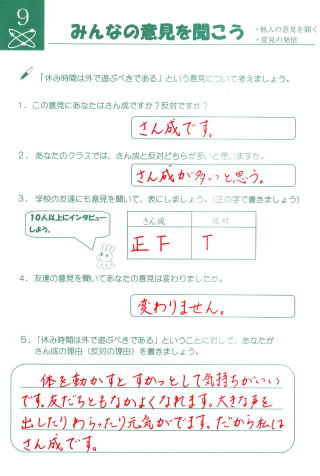 9
みんなの意見を聞こう
・他人の意見を聞く
・意見の発信
「休み時間は外で遊ぶべきである」という意見について考えましょう。
1．この意見にあなたはさん成ですか？反対ですか？
さん成です。
2．あなたのクラスでは、さん成と反対どちらが多いと思いますか。
さん成が多いと思う。
3．学校の友達にも意見を聞いて、表にしましょう。（正の字で書きましょう）
10人以上にインタビュー
しよう。
さん成 反対
正下 T
4．友達の意見を聞いてあなたの意見は変わりましたか。
変わりません。
5．「休み時間は外で遊ぶべきである」ということに対して、あなたが
さん成の理由（反対の理由）を書きましょう。
体を動かすとすかっとして気持ちがいい
です。友だちともなかよくなれます。大きな声を
出したりわらったり元気がでます。だから私は
さん成です。